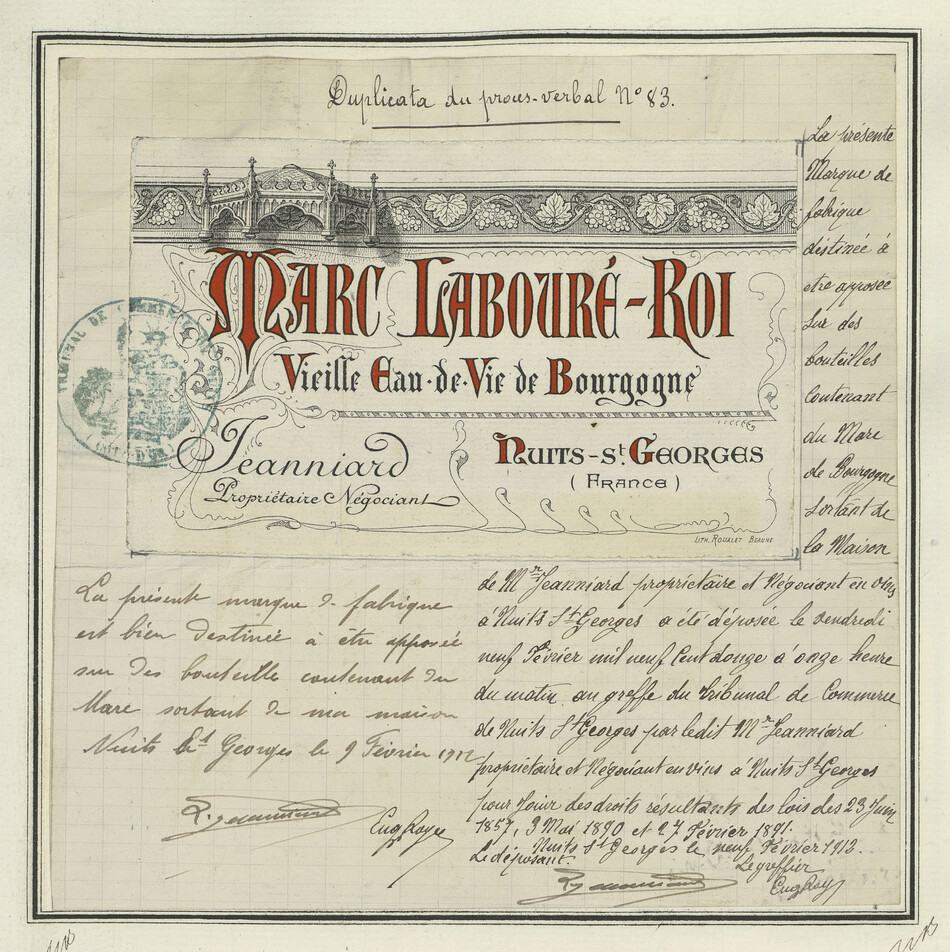 Duplicata du procès-verbal N° 83.
MARC LABOURÉ-ROI
Vieille Eau-de-Vie de Bourgogne
Jeanniard
Propriétaire Négociant
NUITS-St. GEORGES
( FRANCE )
LITH. ROUALET BEAUNE
TRIBUNAL DE COMMERCE
(CÔTE-D'OR)
La présente
Marque de
fabrique
destinée à
etre apposée
sur des
bouteilles
contenant
du Marc
de Bourgogne
sortant de
la Maison
de Mr Jeanniard propriétaire et Négociant en vins
à Nuits St Georges a été déposée le vendredi
neuf Février mil neuf Cent douze à onze heure
du matin au greffe du Tribunal de Commerce
de Nuits St Georges par ledit Mr Jeanniard
propriétaire et Négociant en vins à Nuits St Georges
pour Jouir des droits résultants des lois des 23 Juin
1857, 3 Mai 1890 et 27 Février 1891.
Nuits St Georges le neuf Février 1912.
Le déposant.
Le greffier
La présente marque de fabrique
est bien destinée à être apposée
sur des bouteille contenant du
Marc sortant de ma maison
Nuits St Georges le 9 Février 1912